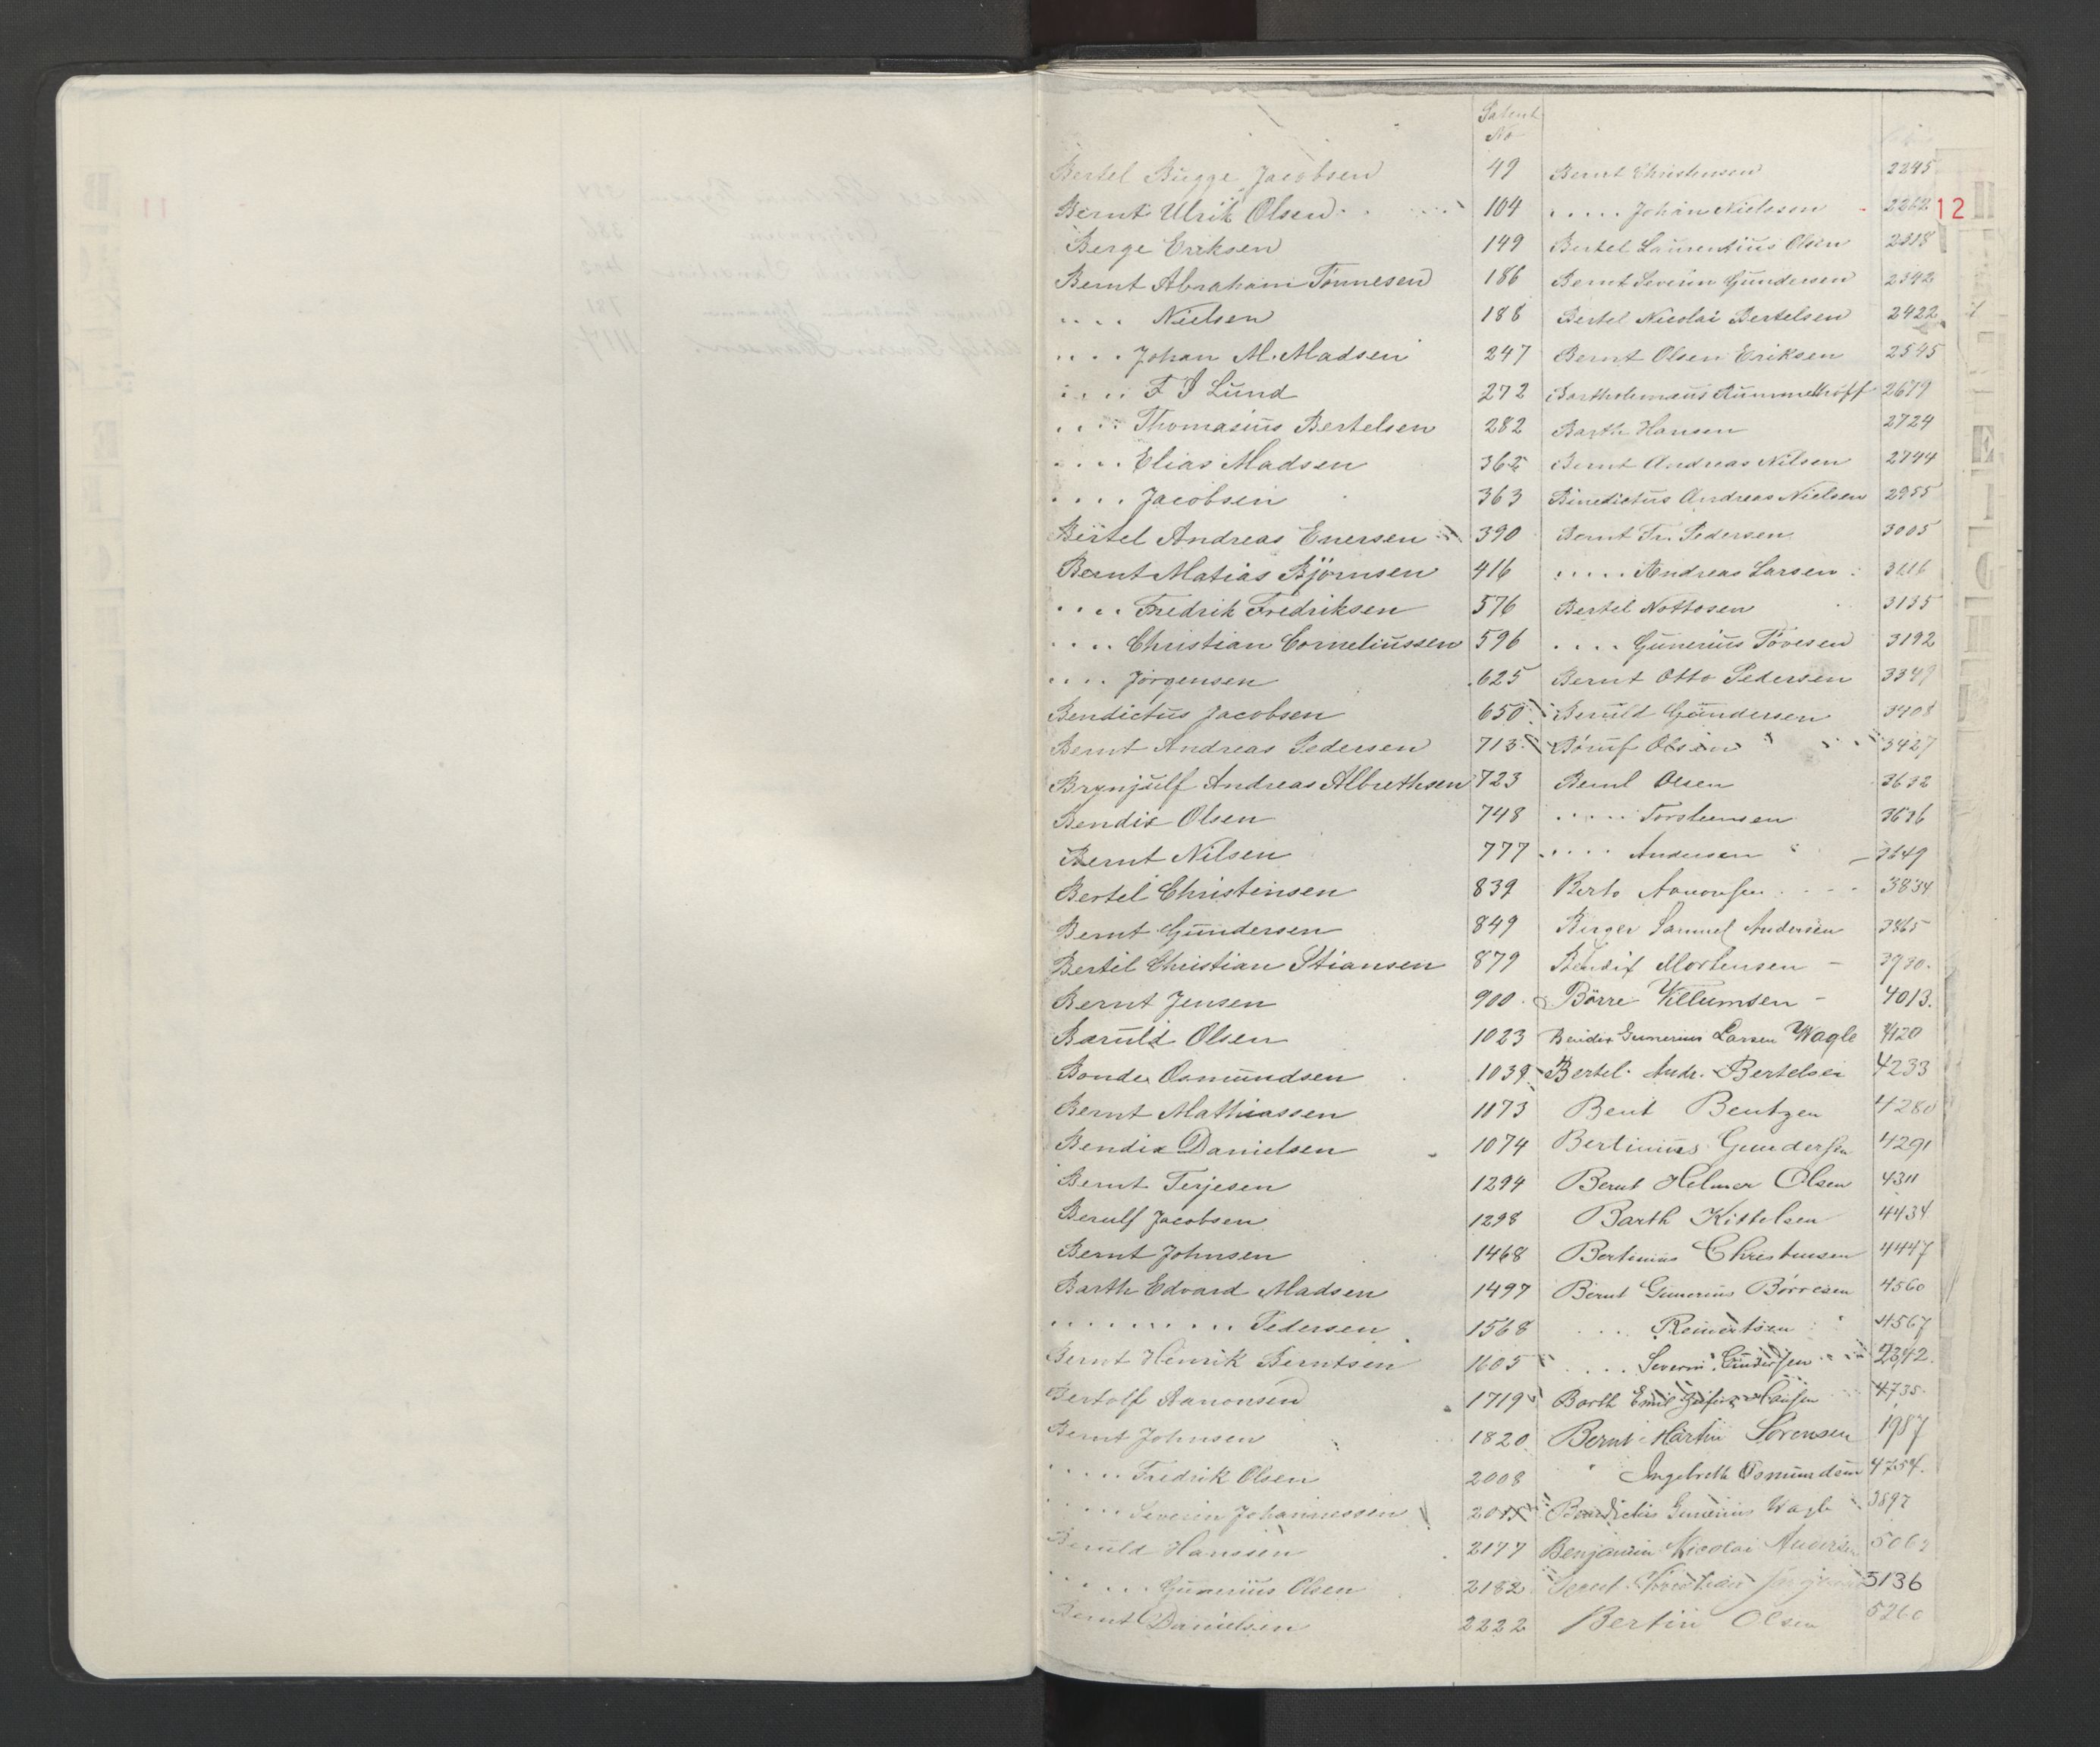 Patent
No
Bertel Bugge Jacobsen 49
Bernt Ulrik Olsen 104
Berge Eriksen 149
Bernt Abraham Tönnesen 186
.... Nielsen 188
.... Johan M. Madsen 247
.... F I Lund 272
.... Thomasius Bertelsen 282
.... Elias Madsen 362
.... Jacobsen 363
Bertel Andreas Enersen 390
Bernt Matias Björnsen 416
.... Fredrik Fredriksen 576
.... Christian Corneliussen 596
.... Jörgensen 625
Bendictus Jacobsen 650
Bernt Andreas Pedersen 713
Brynjulf Andreas Albrethsen 723
Bendix Olsen 748
Bernt Nilsen 777
Bertel Christensen 839
Bernt Gundersen 849
Bertil Christian Stiansen 879
Bernt Jensen 900
Baruld Olsen 1023
Bonde Osmundsen 1039
Bernt Mathiassen 1173
Bendix Danielsen 1074
Bernt Terjesen 1294
Berulf Jacobsen 1298
Bernt Johnsen 1468
Barth Edvard Madsen 1497
......... Pedersen 1568
Bernt Henrik Berntsen 1605
Bertolf Aanonsen 1719
Bernt Johnsen 1820
..... Fredrik Olsen 2008
..... Severin Johannessen
Beruld Hansen 2177
..... Gunerius Olsen 2182
Bernt Danielsen 2222
Bernt Christensen 2245
..... Johan Nielssen 2262
Bertel Laurentius Olsen 2318
Bernt Severin Gundersen 2342
Bertel Nicolai Bertelsen 2422
Bernt Olsen Eriksen 2545
Bartholomæus Rummelhoff 2679
Barth Hansen 2724
Bernt Andreas Nilsen 2744
Binedictus Andreas Nielsen 2955
Bernt Fr. Pedersen 3005
..... Andreas Larsen 3116
Bertel Nottosen 3135
.... Gunerius Tövesen 3192
Bernt Otto Pedersen 3349
Beruld Gundersen 3408
Böruf Olsen 3427
Bernt Olsen 3632
..... Torstensen 3636
.... Andersen 3649
Berto Aanonsen 3834
Birger Samuel Andersen 3865
Bendix Mortensen - 3930.
Börre Villumsen - 4013.
Bendix Gunerius Larsen Wagle 4120
Bertel Andr. Bertelsen 4233
Bent Bentzen 4280
Bertinius Gundersen 4291
Bernt Helmer Olsen 4311
Barth Kittelsen 4434
Bertinius Christensen 4447
Bernt Gunerius Börresen 4560
.... Reinertsen 4567
.... Severin Gundersen 2342.
Barth Emil Hansen 4735.
Bernt Martin Sörensen 1987
" Ingebreth Osmundsen 4754.
Benedictus Gunerius Wagle 3897
Benjamin Nicolai Andersen
Bernt Christian 5136
Bertin Olsen 5260
12
11